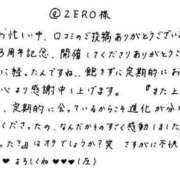 @ZERO様
お忙しい中、口コミのご投稿ありがとうござい
3周年記念、開催してくださりありがとうござ
に軽ったんですね、飽きずに定期的にお
心より感謝申し上げます。『また上
、定期的に会っているからこそ進化が分か
ったり、なんだかものすごく感動しまし
った?』はオケでしょうか?笑 さすがに不快
♥♥よろしくね♡♡♡(圧)